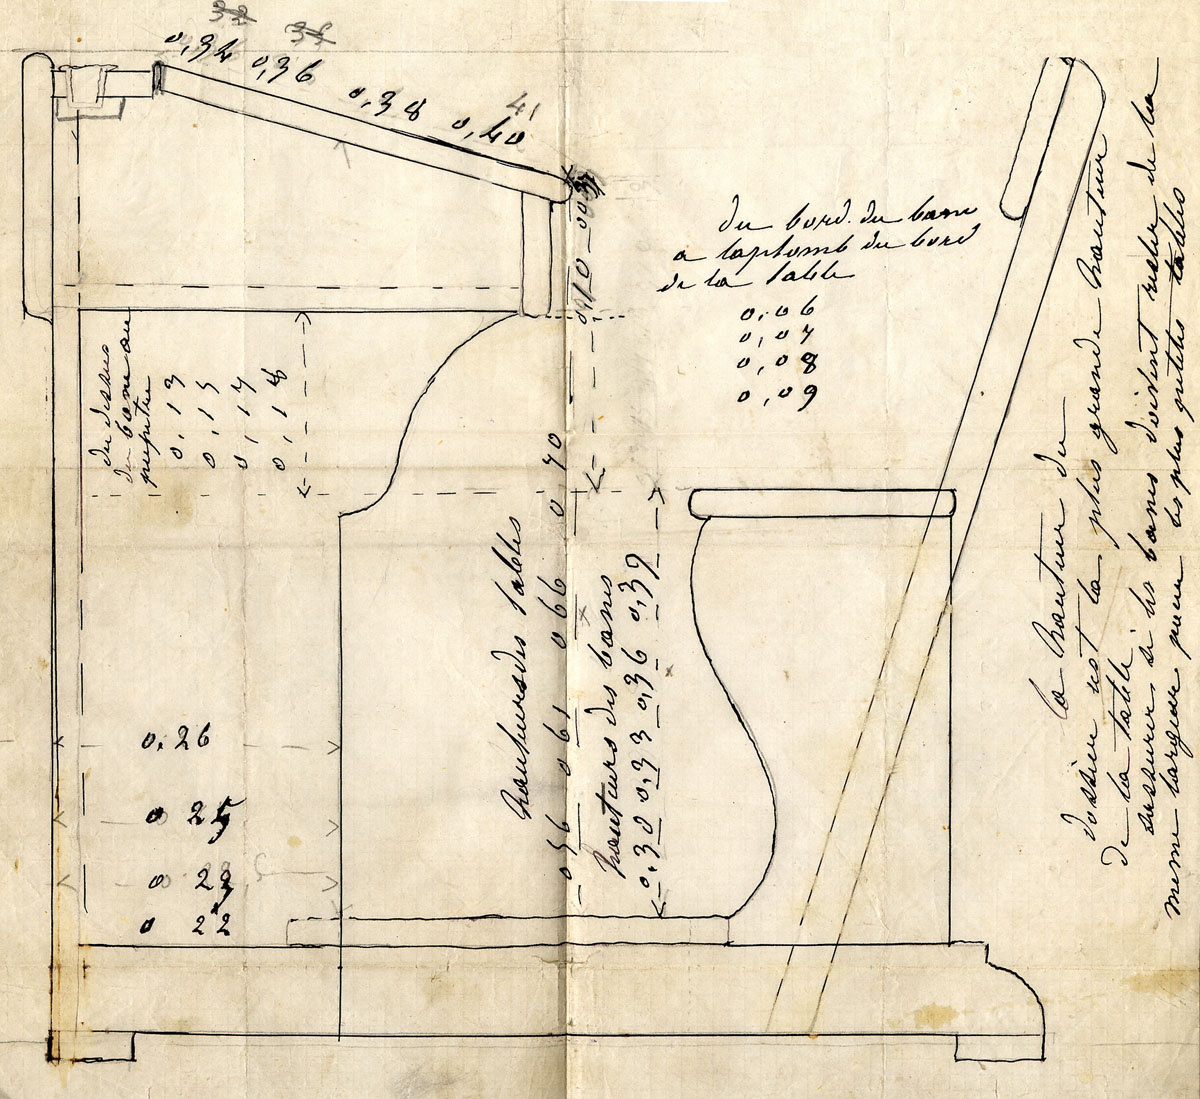 0,34 0,36 0,38 0,40
41
du bord du banc
a laplomb du bord
de la table
0,06
0,07
0,08
0,09
du dessus
du banc au
pupitre
0,13
0,15
0,17
0,18
0,26
0 25
0 23
0 22
hauteurs des tables
0 56 0 61 0 66 0 70
hauteurs des bancs
0,30 0,33 0,36 0,39
la hauteur du
dossier est la plus grande hauteur
de la table
assurer si les bancs doivent rester de la
meme largeur pour les plus petites tables